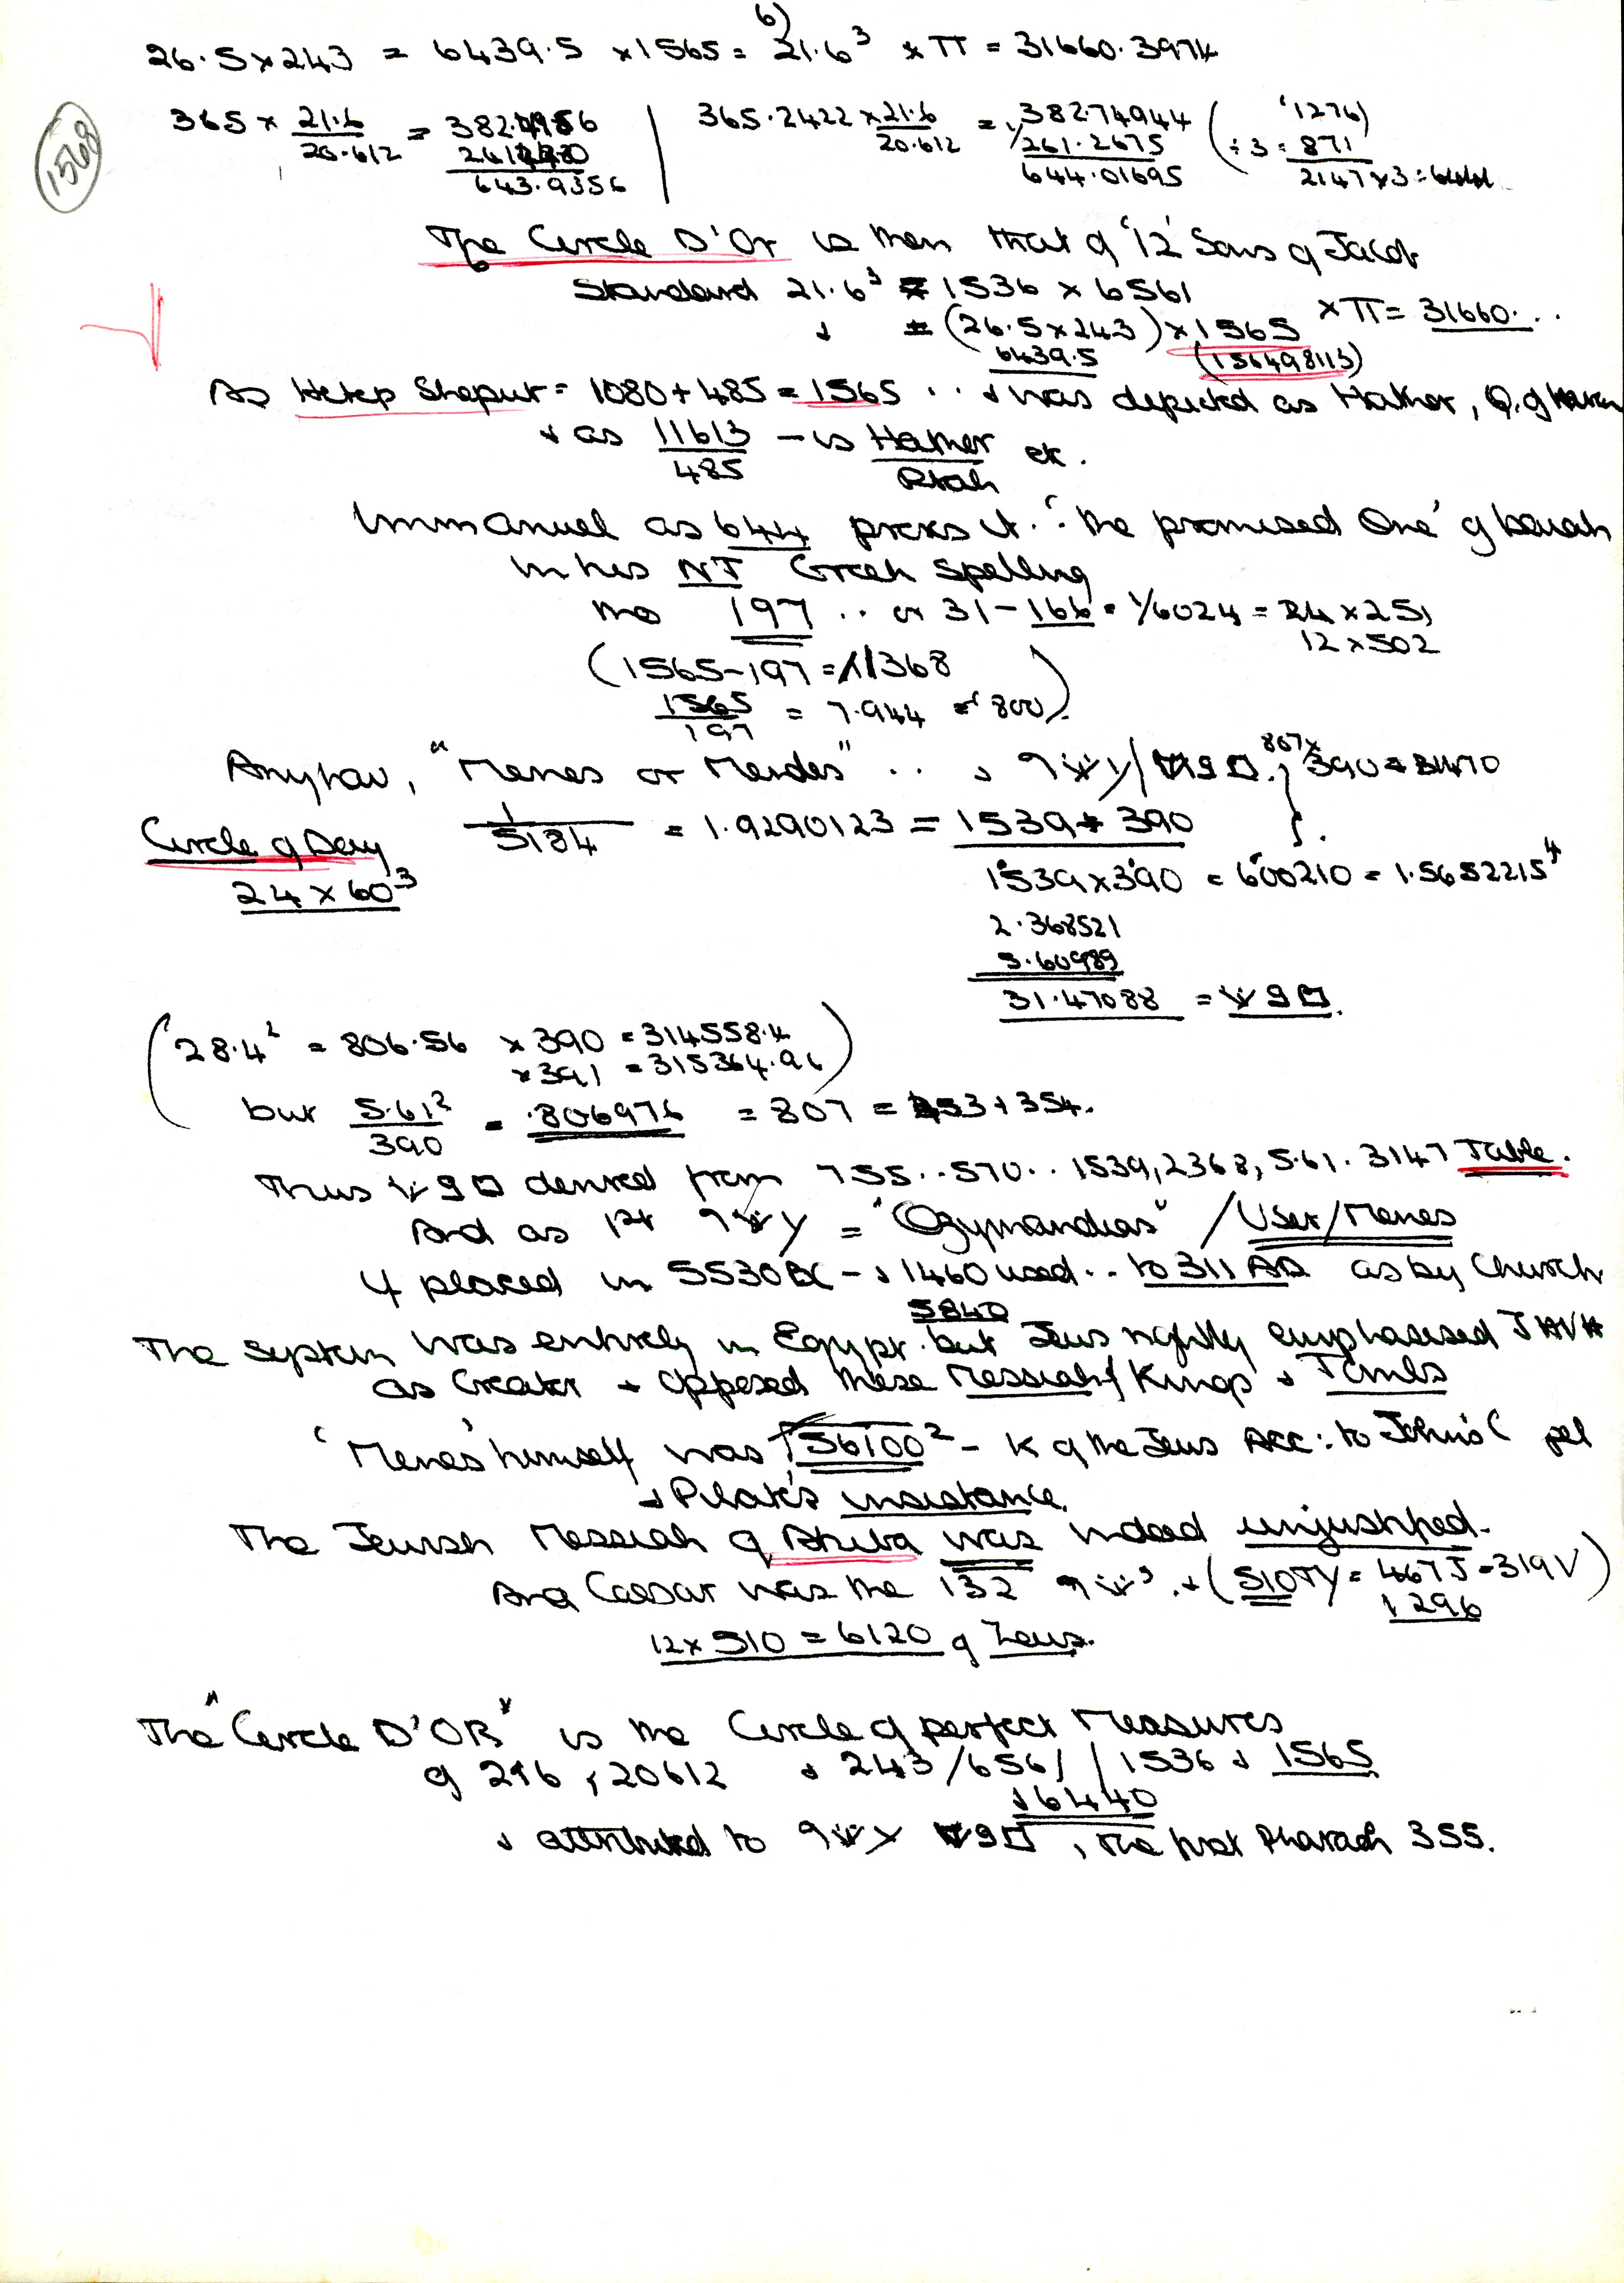 6)
26.5 x 243 = 6439.5 x 1565 = 21.6³ x π = 31660.3974
1568
365 x 21.6/20.612 = 382.4956 | 365.2422 x 21.6/20.612 = 382.74944 ( '1276)
643.9356 261.2675 ÷3 = 871
644.01695 2147 x 3 = 6441
The Circle D'Or is then that of '12' Sons of Jacob
Standard 21.6³ = 1536 x 6561
= (26.5 x 243) x 1565 x π = 31660...
6439.5 (156498113)
As Hetep Sheput = 1080 + 485 = 1565 .. & was depicted as Hathor, Q. of
& as 11613/485 - is Hathor/Ptah etc.
Immanuel as 644 proves it. 'The promised One' of Isaiah
in his NT Greek Spelling
the 197 .. or 31 - 166 = 1/6024 = 24 x 251
12 x 502
(1565 - 197 = 1368
1565/197 = 7.944 = '800)
Anyhow, "Menes or Mendes" ..
807 x 390 = 31470
1/5184 = 1.9290123 = 1539 + 390
Circle of Day
24 x 60³
1539 x 390 = 600210 = 1.5652215⁴
2.368521
5.60989
31.47088 =
(28.4² = 806.56 x 390 = 314558.4
x 391 = 315364.96)
but 5.61²/390 = .806976 = 807 = 453 + 354.
Thus derived from 755..570.. 1539, 2368, 5.61. 3147 Table.
And as 1st = "Ozymandias" / User/Menes
If placed in 5530 BC - & 1460 used .. to 311 AD as by Church
5840
The System was entirely in Egypt but Jews rightly emphasised JHVH
as Creator & opposed these Messiah/Kings & Tombs
'Menes' himself was √56100² - K of the Jews Acc: to John's
& Pilate's insistance.
The Jewish Messiah of Akiba was indeed unjustified.
And Caesar was the 132 & (510 TY = 467 J = 319 V)
1296
12 x 510 = 6120 of Zeus.
The "Circle D'OR" is the Circle of perfect Measures
of 216, 20612 & 243/6561 / 1536 & 1565
& 6440
& attributed to , the first Pharaoh 355.